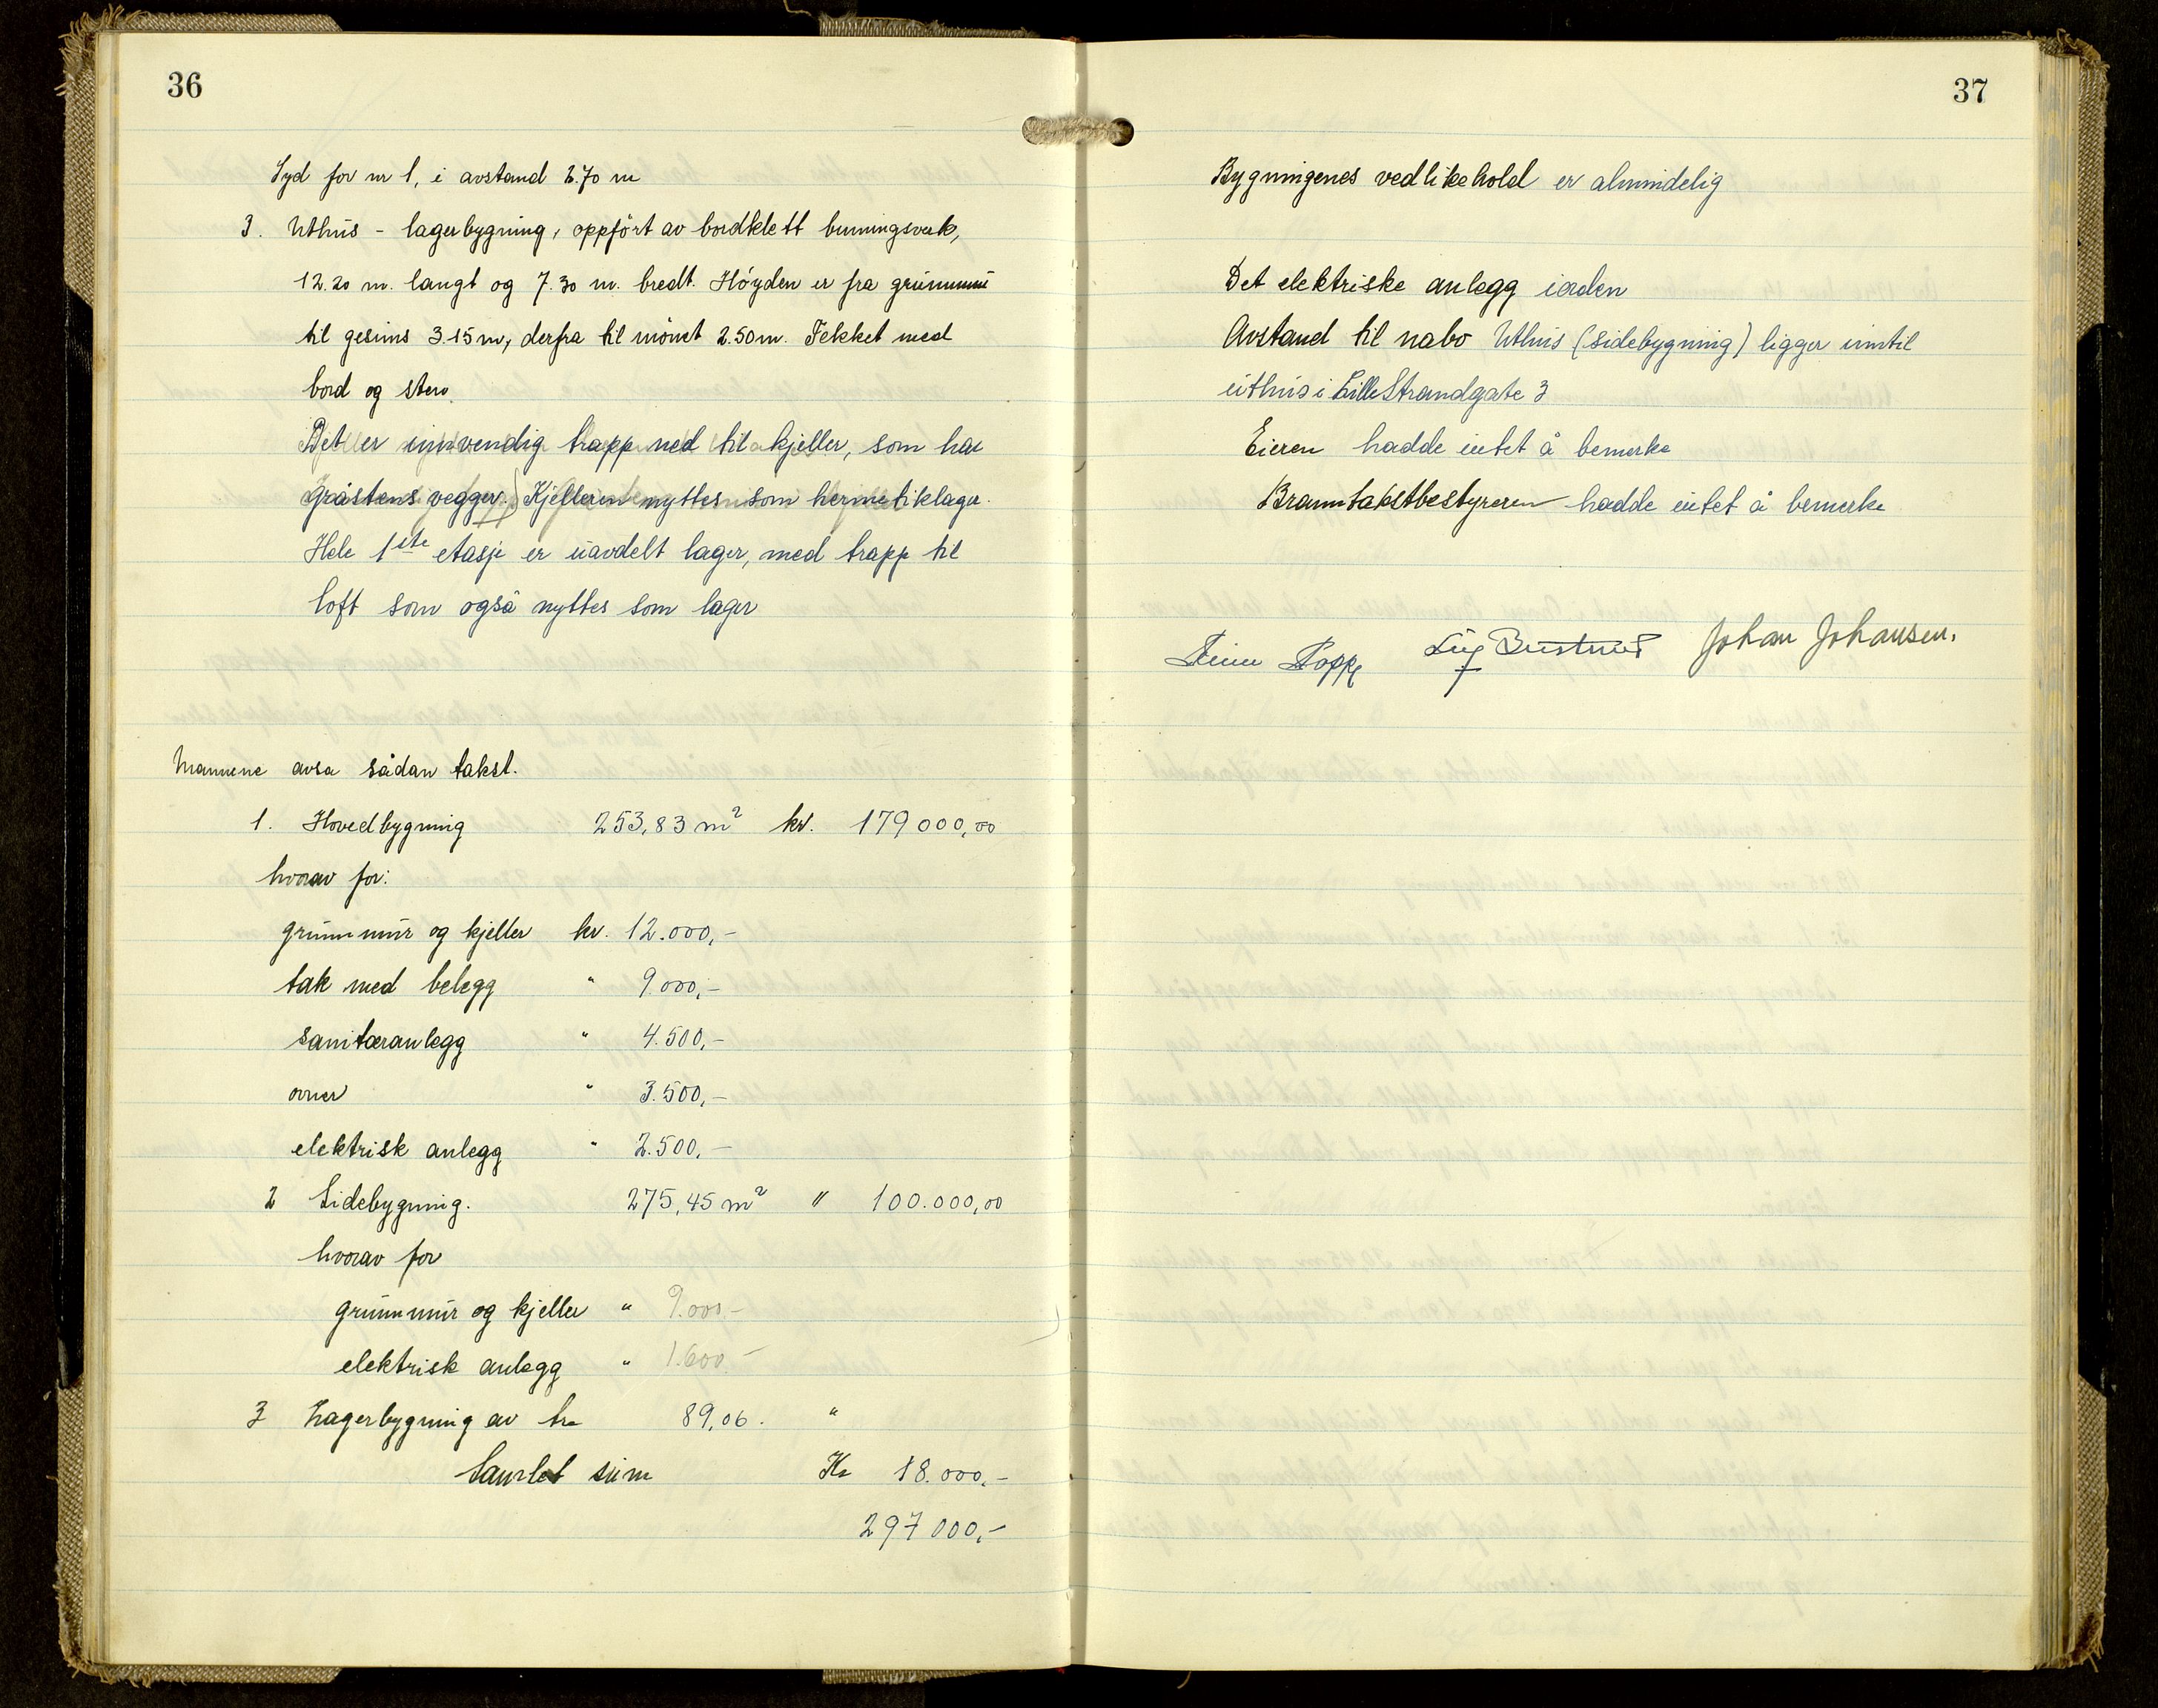 36
Syd for nr 1, i avstand 2.70 m
3. Uthus - lagerbygning, oppført av bordkledt bunningsverk,
12.20 m. langt og 7.30 m. bredt. Høyden er fra grunnmur
til gesims 3.15 m, derfra til mönet 2.50 m. Tekket med
bord og sten.
Det er innvendig trapp ned til kjeller, som har
gråstens vegger. Kjelleren nyttes som hermetiklager.
Hele 1ste etasje er uavdelt lager, med trapp til
loft som også nyttes som lager
Mannene avsa sådan takst.
1. Hovedbygning 253,83 m² kr. 179 000,00
hvorav for:
grunnmur og kjeller kr. 12.000,-
tak med belegg " 9.000,-
sanitæranlegg " 4.500,-
ovner " 3.500,-
elektrisk anlegg " 2.500,-
2 Sidebygning. 275,45 m² " 100.000,00
hvorav for
grunnmur og kjeller " 9.000-
elektrisk anlegg " 1.600-
3 Lagerbygning av tre 89,06. "
Samlet sum Kr 18.000,-
297 000,-
37
Bygningenes vedlikehold er almindelig
Det elektriske anlegg iorden
Avstand til nabo Uthus (sidebygning) ligger inntil
uthus i Lille Strandgate 3
Eieren hadde intet å bemerke
Branntakstbestyreren hadde intet å bemerke
Johan Johansen.